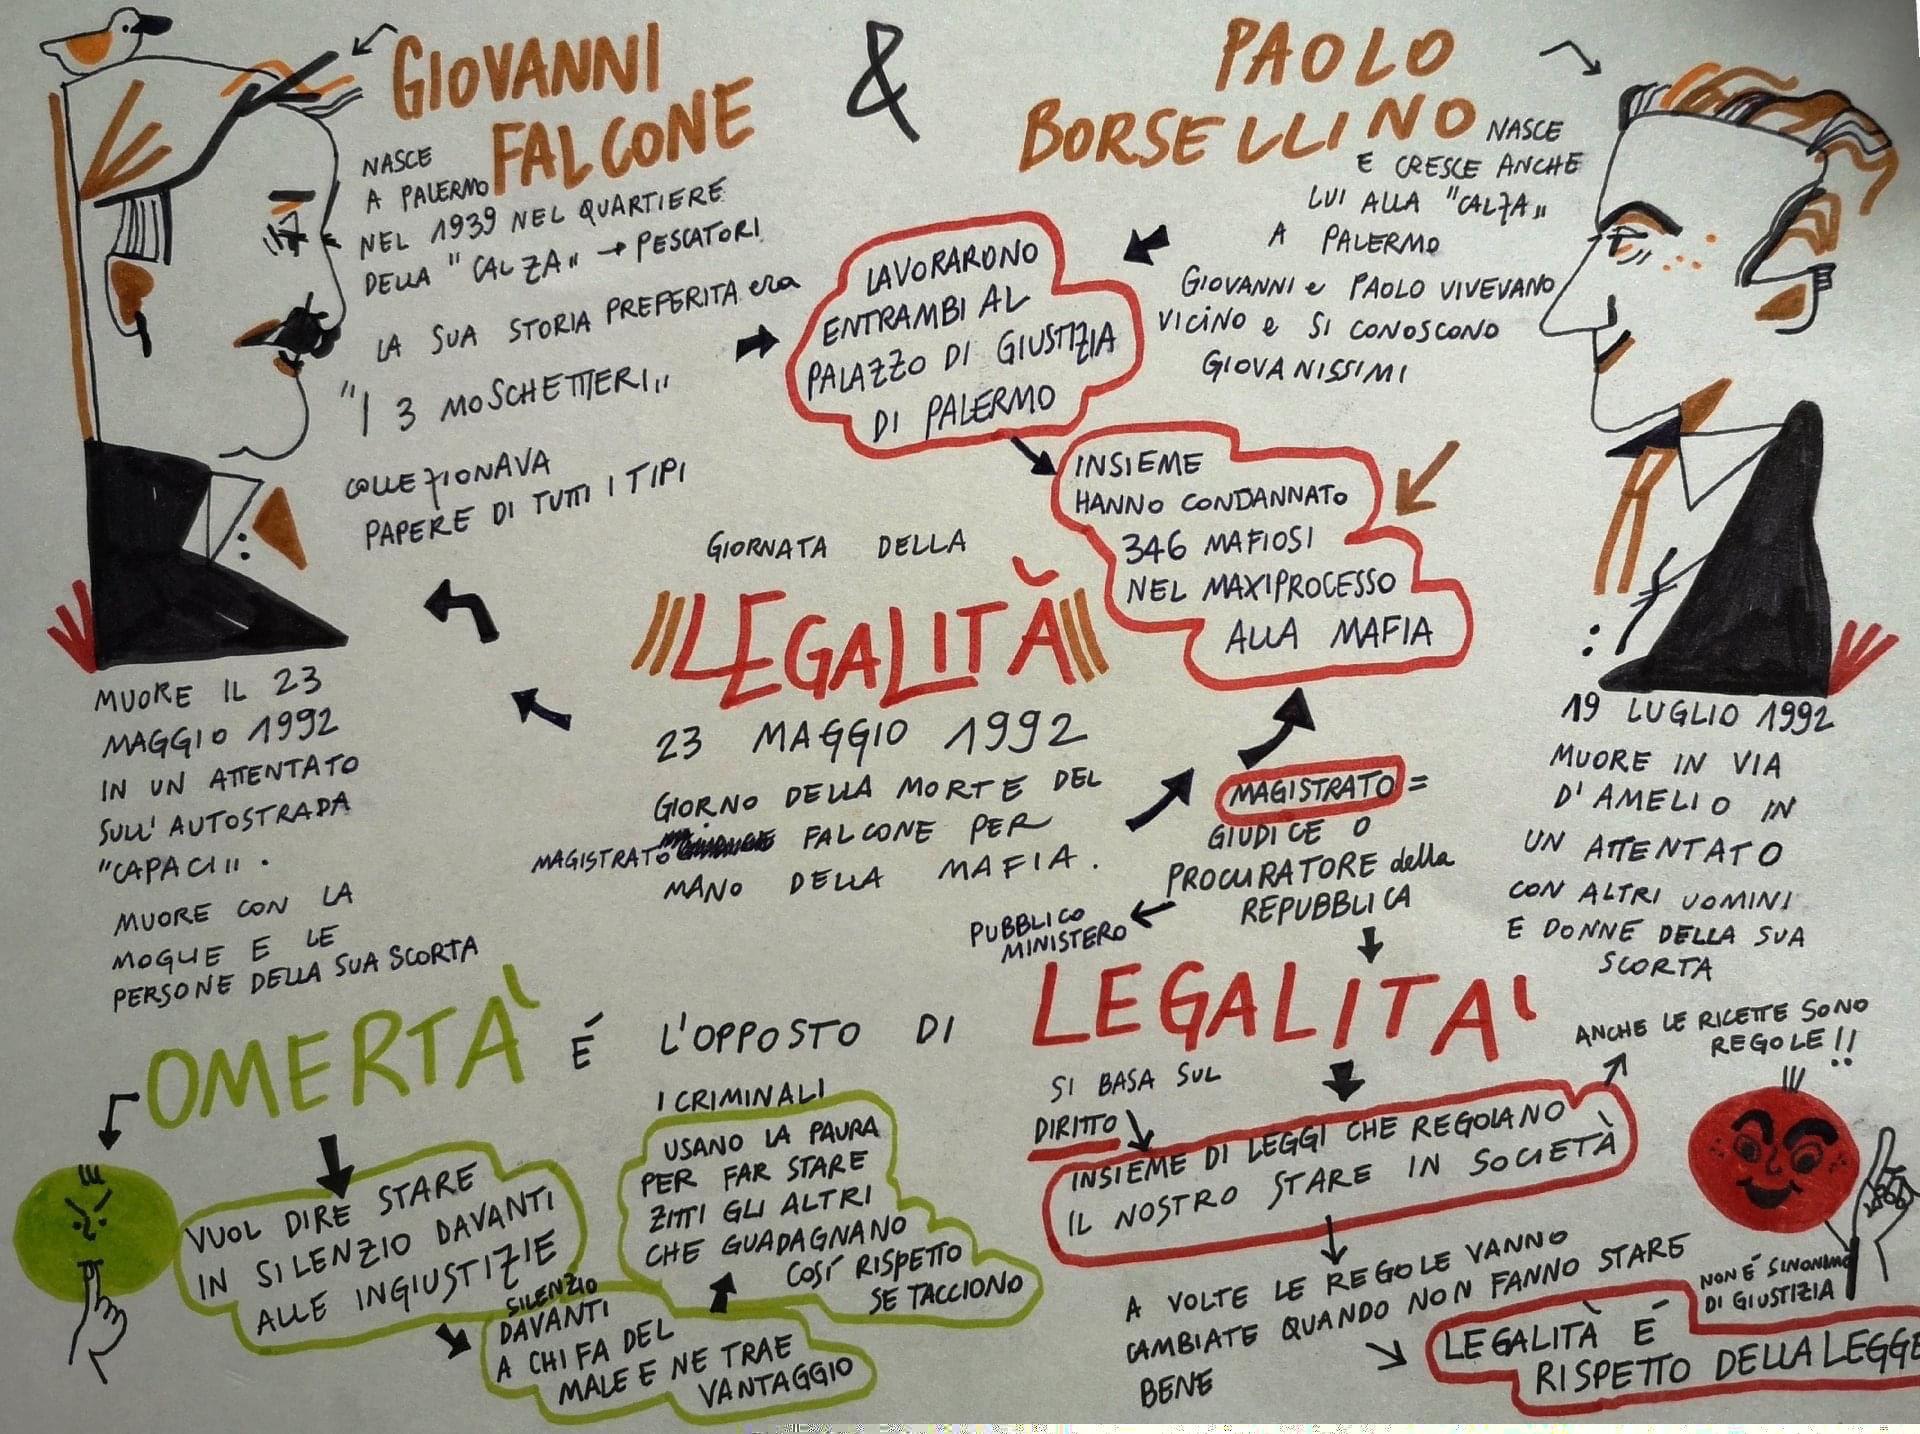 GIOVANNI
FALCONE
&
PAOLO
BORSELLINO
NASCE
A PALERMO
NEL 1939 NEL QUARTIERE
DELLA "CALZA" → PESCATORI
LA SUA STORIA PREFERITA era
"I 3 MOSCHETTIERI"
COLLEZIONAVA
PAPERE DI TUTTI I TIPI
LAVORARONO
ENTRAMBI AL
PALAZZO DI GIUSTIZIA
DI PALERMO
NASCE
E CRESCE ANCHE
LUI ALLA "CALZA"
A PALERMO
GIOVANNI e PAOLO VIVEVANO
VICINO e SI CONOSCONO
GIOVANISSIMI
INSIEME
HANNO CONDANNATO
346 MAFIOSI
NEL MAXIPROCESSO
ALLA MAFIA
GIORNATA DELLA
LEGALITÀ
23 MAGGIO 1992
GIORNO DELLA MORTE DEL
MAGISTRATO FALCONE PER
MANO DELLA MAFIA.
MUORE IL 23
MAGGIO 1992
IN UN ATTENTATO
SULL'AUTOSTRADA
"CAPACI".
MUORE CON LA
MOGLIE E LE
PERSONE DELLA SUA SCORTA
MAGISTRATO =
GIUDICE O
PROCURATORE della
REPUBBLICA
PUBBLICO
MINISTERO
19 LUGLIO 1992
MUORE IN VIA
D'AMELIO IN
UN ATTENTATO
CON ALTRI UOMINI
E DONNE DELLA SUA
SCORTA
OMERTA'
É L'OPPOSTO DI
LEGALITA'
VUOL DIRE STARE
IN SILENZIO DAVANTI
ALLE INGIUSTIZIE
SILENZIO
DAVANTI
A CHI FA DEL
MALE E NE TRAE
VANTAGGIO
I CRIMINALI
USANO LA PAURA
PER FAR STARE
ZITTI GLI ALTRI
CHE GUADAGNANO
COSÍ RISPETTO
SE TACCIONO
SI BASA SUL
DIRITTO
INSIEME DI LEGGI CHE REGOLANO
IL NOSTRO STARE IN SOCIETÀ
ANCHE LE RICETTE SONO
REGOLE!!
A VOLTE LE REGOLE VANNO
CAMBIATE QUANDO NON FANNO STARE
BENE
NON É SINONIMO
DI GIUSTIZIA
LEGALITÀ É
RISPETTO DELLA LEGGE